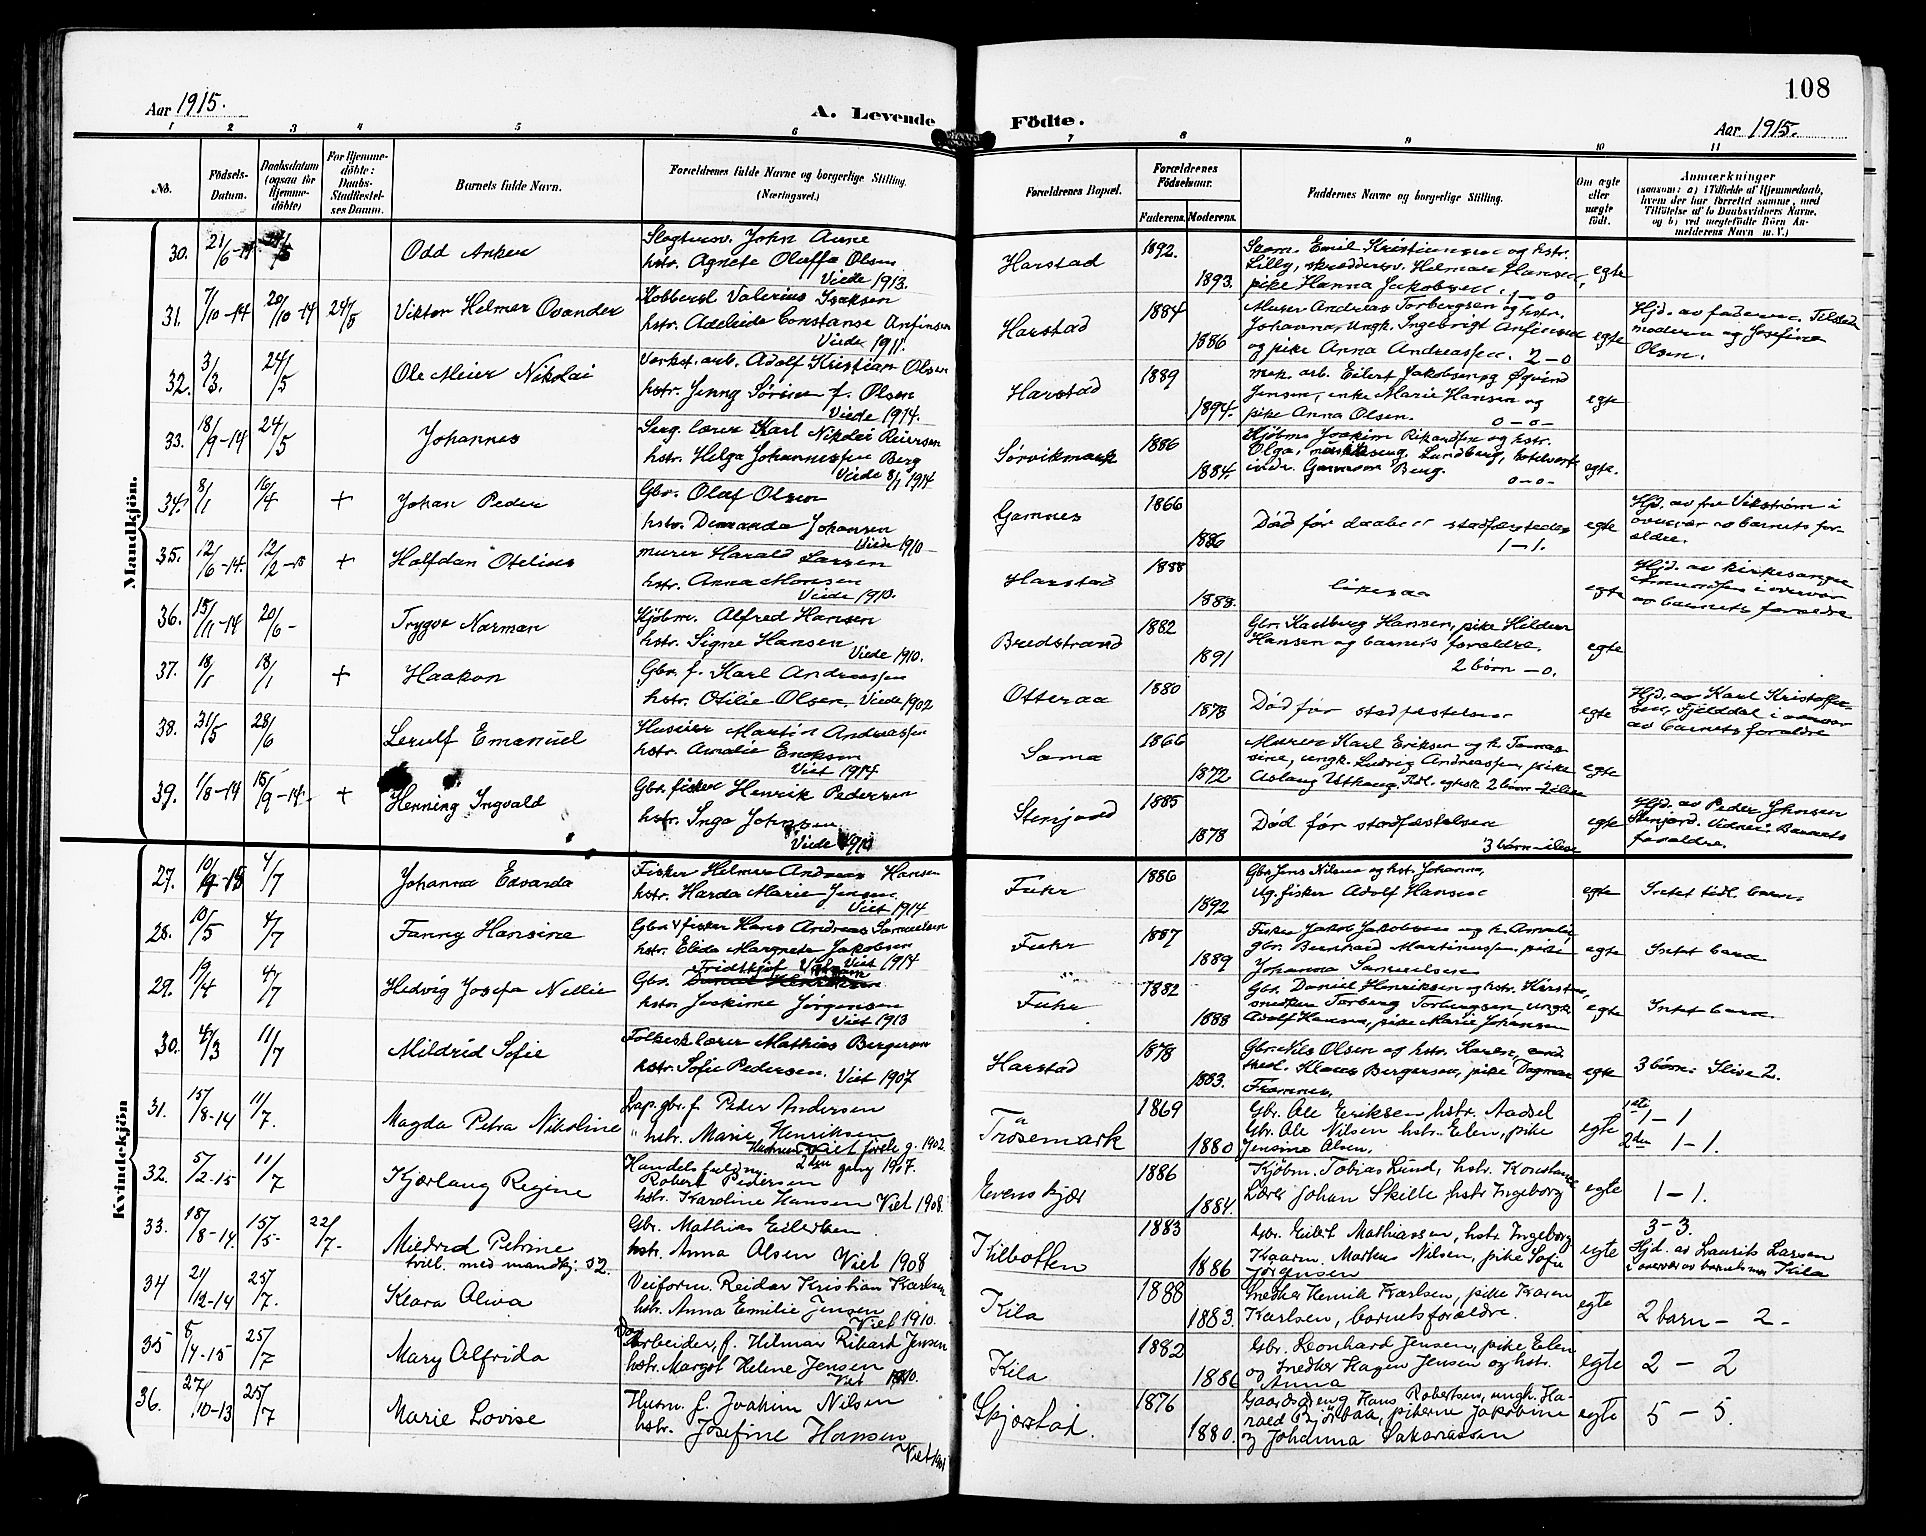 108
Aar 1915.
A. Levende Födte.
Aar 1915.
1 2 3 4 5 6 7 8 9 10 11
No.
Födsels-Datum.
Daabsdatum (ogsaa for Hjemme-döbte)
For Hjemme-döbte: Daabs-Stadfæstel-ses Datum.
Barnets fulde Navn.
Forældrenes fulde Navne og borgerlige Stilling. (Næringsvei.)
Forældrenes Bopæl.
Forældrenes Födselsaar.
Faderens. Moderens.
Faddernes Navne og borgerlige Stilling.
Om ægte eller uægte födt.
Anmærkninger
(saasom: a) i Tilfælde af Hjemmedaab, hvem der har forrettet samme, med Tilföielse af to Daabsvidners Navne, og b) ved uegtefödte Börn An-melderens Navn m. V.)
Mandkjön.
30. 21/6-14. Odd Anker
John Aune
hstr. Agnete Olaffa Olsen
Viede 1913.
Harstad 1892. 1893.
Emil Kristiansen og hstr.
Lilly, Helmar Hansen,
pike Hanna Jakobsen. 1-0
egte
31. 7/10-14 20/10-14 24/5 Viktor Helmer Ovander
Kobbersl Valerius Isaksen
hstr. Adeleide Constanse Anfinsen
Viede 1911.
Harstad 1884 1886
Murer Andreas Torbergsen og hstr.
Johanna, ungk. Ingebrigt Anfinsen
og pike Anna Andreassen. 2-0
egte
Hjd. av faderen. Tilstede
moderen og Josefine
Olsen.
32. 31/3. 24/5 Ole Meier Nikolai
Verkst. arb. Adolf Kristian Olsen
hstr. Jenny Sørine f. Olsen
Viede 1914.
Harstad 1889 1894.
mek. arb. Eilert Jakobsen og Øyvind
Jensen, enke Marie Hansen og
pike Anna Olsen. 0-0-
egte
33. 18/9-14 24/5 Johannes
Serg. lærer Karl Nikolai Reiersen
hstr. Helga Johannessen Berg
Viede 8/1 1914
Sørvikmark 1886 1884.
Kjøbm. Joakim Rikardsen og hstr.
Olga, Lundberg,
Berg. 0-0-
egte.
34. 8/1 16/4 + Johan Peder
Gbr. Olaf Olsen
hstr. Demanda Johansen
Viede 1910-
Gamnes 1866 1886
Død før daaben stadfæstedes
1-1.
egte
Hjd. av fru Vikstrøm i
overvær av barnets for-
ældre.
35. 12/6-14. 12/2-15 + Halfdan Otelius
murer Harald Larsen
hstr. Anna Monsen
Viede 1910.
Harstad 1888 1888.
likesaa
egte
Hjd. av kirkesanger
i overvær
av barnets forældre
36. 15/11-14 20/6- Trygve Norman
Kjøbm. Alfred Hansen
hstr. Signe Hansen
Viede 1910.
Bredstrand 1882 1891
Gbr. Hansen, pike Hildur
Hansen og barnets forældre.
2 børn-0.
egte
37. 18/1 18/1 + Haakon
Gbr. f. Karl Andreassen
hstr. Otilie Olsen. Viede 1902
Otteraa 1880 1878
Død før stadfæstelsen
egte
Hjd. av Karl Kristoffer-
sen, Fjelddal i overvær
av barnets forældre
38. 31/5 28/6 Lerulf Emanuel
Husmann Martin Andreassen
hstr. Amalie Eriksen
Viet 1914
Sama 1866 1872
Murer Karl Eriksen og h. Tomas-
sine, ungk. Ludvig Andreassen, pike
Aslaug Tidl. egtsk. 2 børn
egte
39. 1/8-14 15/9-14 + Henning Ingvald
Gbr. fisker Henrik Pedersen
hstr. Inga Johnsen
Viede
Stenjord 1885 1878
Død før stadfæstelsen
3 børn
egte
Hjd. av Peder Johnsen
Stenjord. Vidner: Barnets
forældre.
Kvindekjön
27. 4/7 Johanna Edvarda
Fisker Helmer Andreas Hansen
hstr. Harda Marie Jensen
Viet 1914
Fuhr 1886 1892
Gbr. Jens Nilsen og hst. Johanna,
Ug. fisker Adolf Hansen
egte
Intet tidl. barn.
28. 10/5 4/7 Fanny Hansine
Gbr. & fisker Hans Andreas Samuelsen
hstr. Elida Margrete Jakobsen
Viet 1914
Fuhr 1887 1889
Fisker Jakob Jakobsen og h. Amalie,
gbr. Bernhard Martinussen, pike
Johanna Samuelsen
egte
Intet barn
29. 19/4 4/7 Hedvig Josefa Nellie
Fridtkjof
Gbr. Daniel Henriksen
hstr. Joakime Jørgensen
Viet 1913
Fuhr 1882 1888
Gbr. Daniel Henriksen og hstr. Kirstine,
snedker Torberg Torbergsen, ungk.
Adolf Hansen, pike Marie Johansen
egte
Intet barn.
30. 4/3 11/7 Mildrid Sofie
Folkesk.lærer Mathias Bergersen
hstr. Sofie Pedersen. Viet 1907
Harstad 1878 1883.
Gbr. Nils Olsen og hstr. Karen,
Klaus Bergersen, pike Dagmar
egte
3 børn: Ilive 2.
31. 15/8-14 11/7. Magda Petra Nikoline
Lap. gbr. f. Peder Andersen
" hstr. Marie Henriksen
viet første g. 1902.
2den gang 1907.
Trøsemark 1869 1880
Gbr. Ole Eriksen hstr. Aadsel
Gbr. Ole Nilsen hstr. Elen, pike
Jensine Olsen.
egte
1ste 1-1
2den 1-1.
32. 5/2-15 11/7 Kjærlaug Regine
Handelsfuldm.
Robert Pedersen
hstr. Karoline Hansen Viet 1908.
Evenskjær 1886 1884.
Kjøbm. Tobias Lund, hstr. Konstanse
Lærer Johan Skille hstr Ingeborg
egte
1-1.
33. 18/8-14. 15/5- 22/7- Mildred Petrine
tvill. med mandkj. 52.
Gbr. Mathias Eilertsen
hstr. Anna Olsen Viet 1908
Kilbotten 1883 1886
Gbr. Eilert Mathiassen, hstr. Ingeborg
Kaarm. Morten Nilsen, pike Sofie
Jørgensen
egte
3-3.
Hjd. av Laurits Larsen
i overvær av barnets mor Kila
34 21/12-14 25/7. Klara Oliva
Veiform. Reidar Kristian Karlsen
hstr. Anna Emilie Jensen
Viet 1910.
Kila 1888 1883.
Snedker Henrik Karlsen, pike Karen
Karlsen, barnets forældre.
egte
2 barn - 2-
35 8/4-15 25/7 Mary Alfrida
Arbeider, f. Hilmar Rikard Jensen
hstr. Margot Helene Jensen
Viet 1910.
Kila 1882 1886
Gbr. Leonhard Jensen, pike Elen
og snedker Hagen Jensen og hstr.
Anna
egte
2 - 2
36. 27/10-13 25/7 Marie Lovise
Husm. f. Joakim Nilsen
hstr. Josefine Hansen
Viet 1901
Skjærstad. 1876 1880.
Gaardsdreng Hans Robertsen, ungk. Ha-
rald pikerne Jakobine
og Johanna Sakariassen
egte
5 - 5.